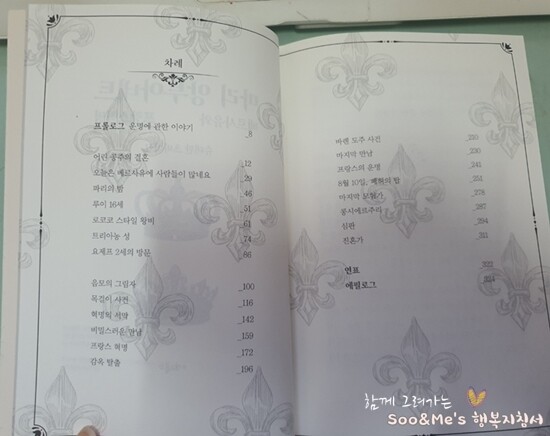 차례
프롤로그 운명에 관한 이야기 _8
어린 공주의 결혼 _12
오늘은 베르사유에 사람들이 많네요 _29
파리의 밤 _46
루이 16세 _51
로코코 스타일 왕비 _61
트리아농 성 _74
요제프 2세의 방문 _86
음모의 그림자 _100
목걸이 사건 _116
혁명의 _142
비밀스러운 만남 _159
프랑스 혁명 _172
감옥 탈출 _196
바렌 도주 사건
마지막 만남 _230
프랑스의 운명 _241
8월 10일, 밤 _251
마지막 모험가
콩시에르주리 _287
심판 _294
진혼가
연표
에필로그
함께 그려가는
Soo&Me's 행복지침서